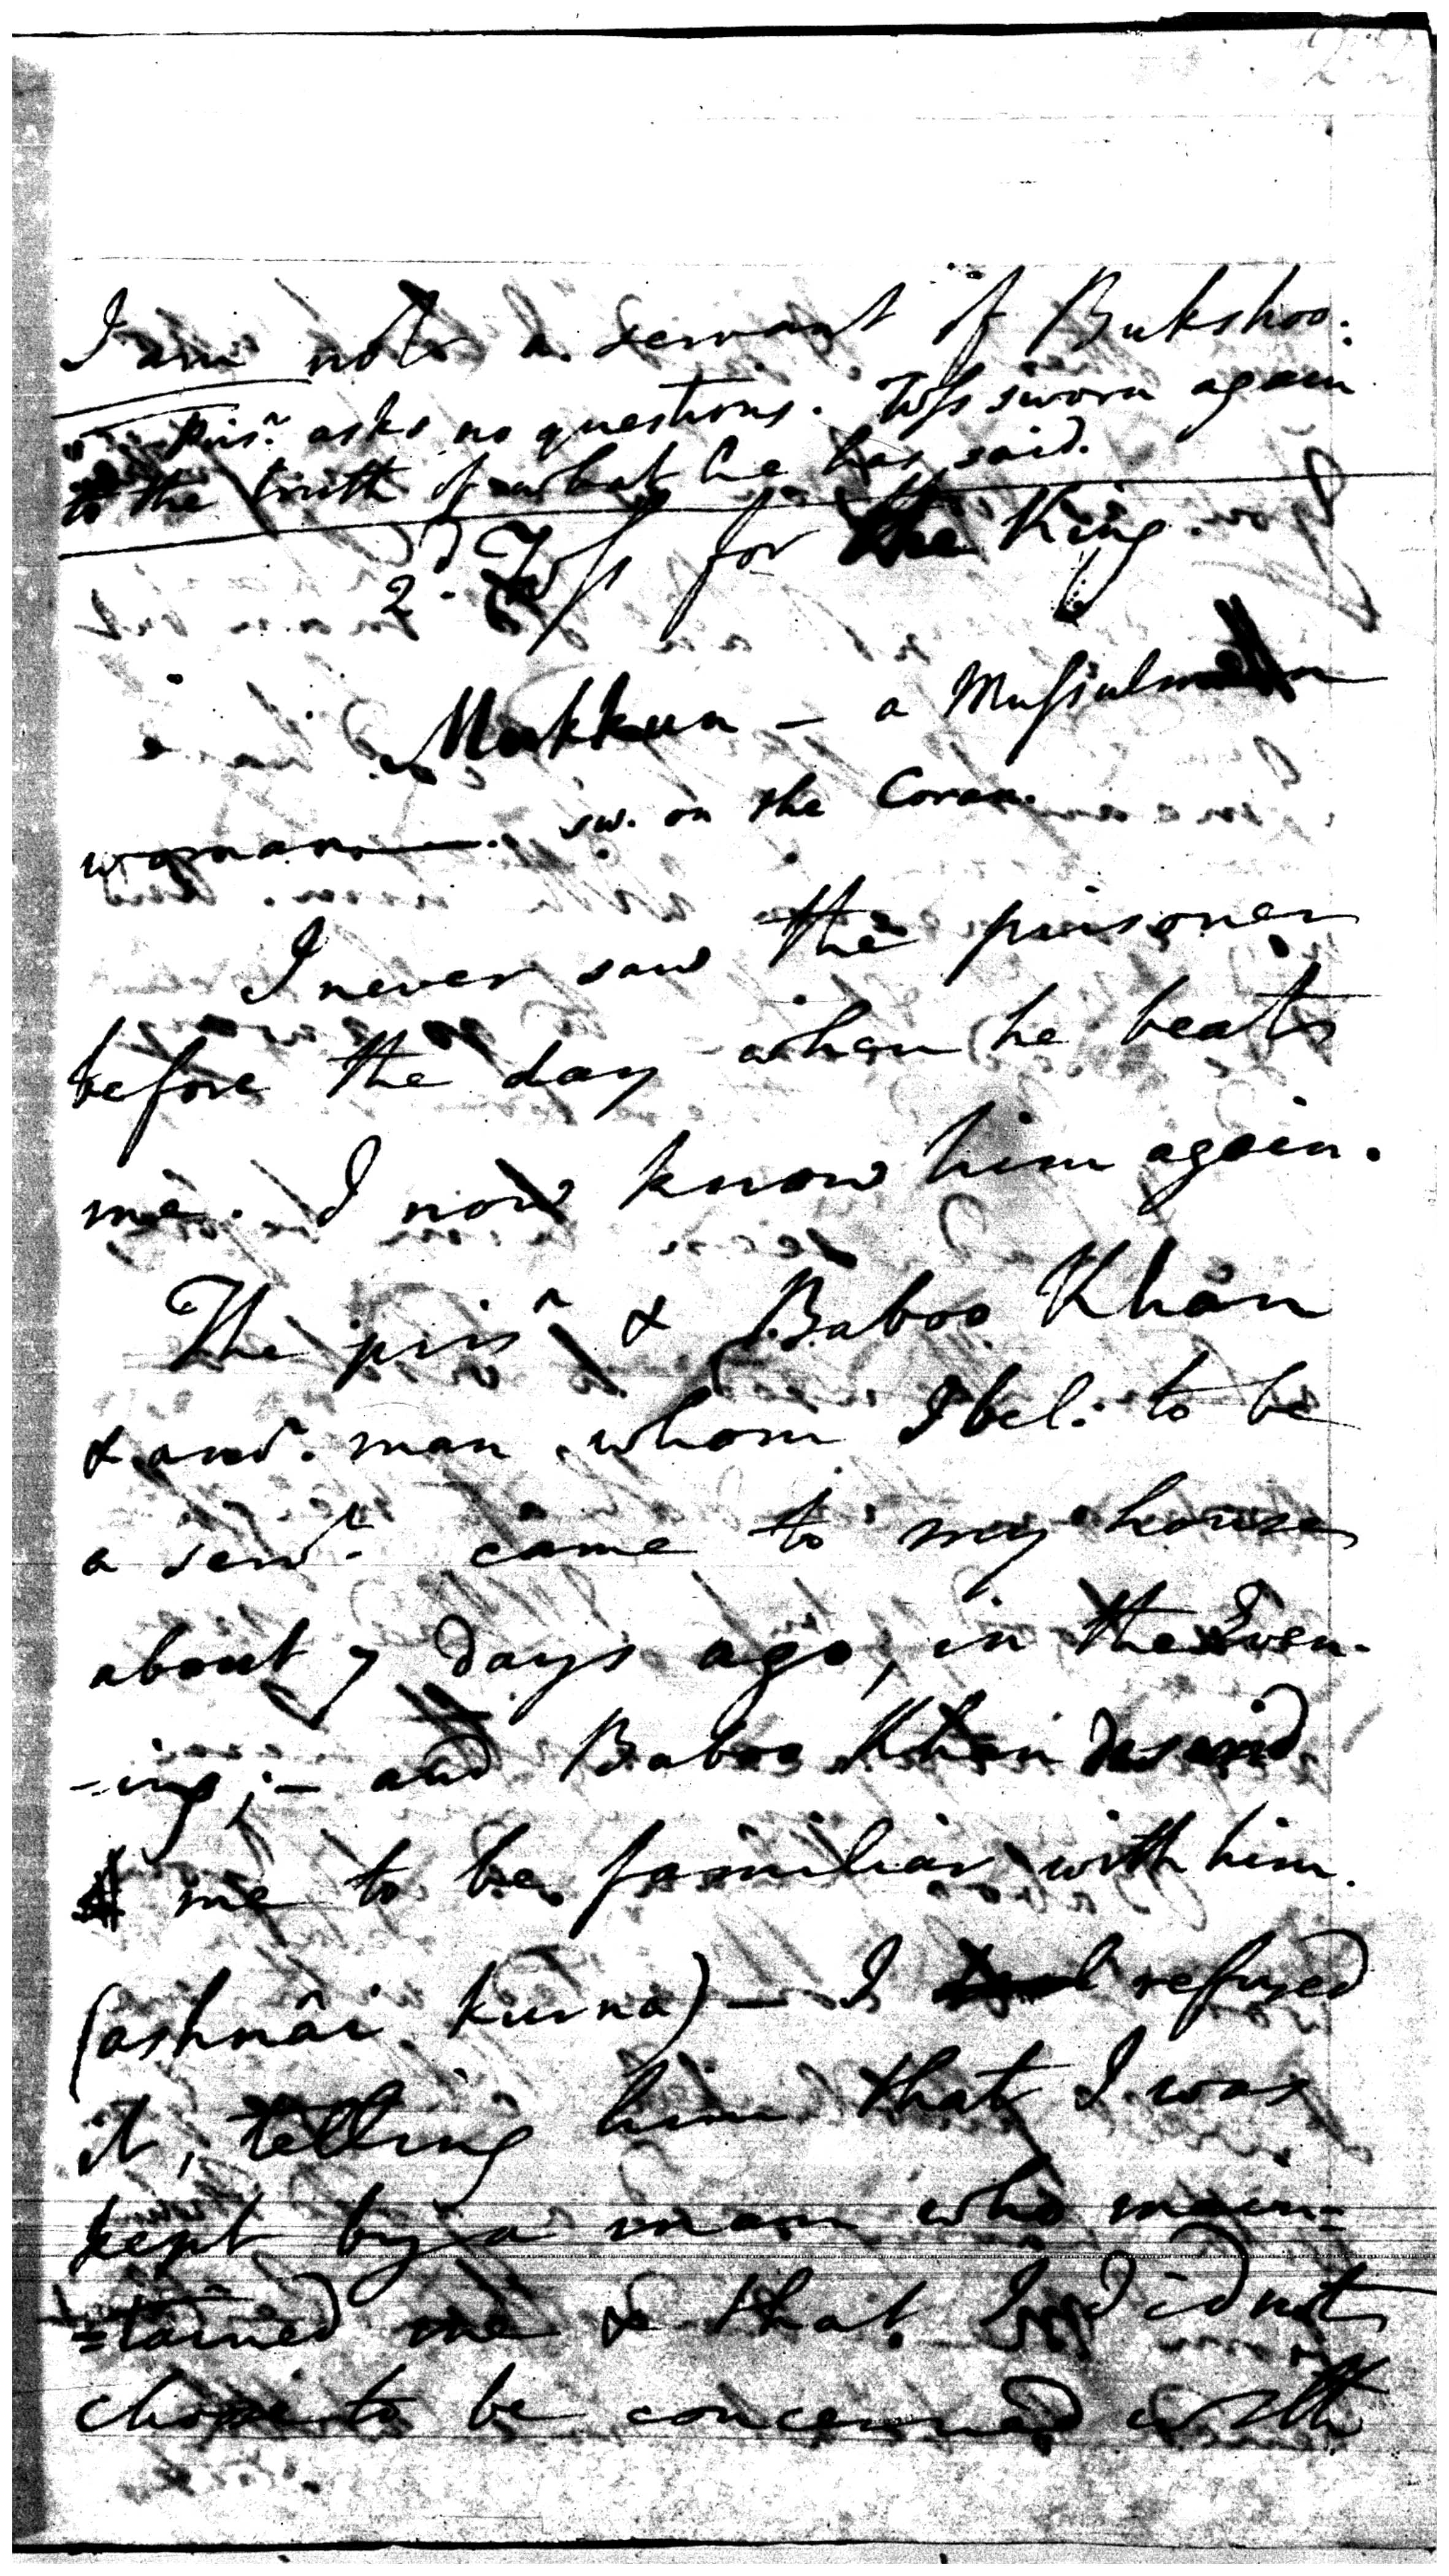 I am not a servant of Bukshoo.
Pris.r asks no questions. Wss sworn again
to the truth of what he has said.
2.d Wss for the King.
Mukkun — a Mussulman
woman. sw. on the Coran.
I never saw the prisoner
before the day when he beat
me. I now know him again.
The pris.r & Baboo Khân
& anor. man whom I bel: to be
a serv.t came to my house
about 7 days ago, in the Even-
-ing; — and Baboo Khan desired
me to be familiar with him.
(ashnâi kurna) — I refused
it, telling him that I was
kept by a man who main=
=tained me & that I did not
chose to be concerned with